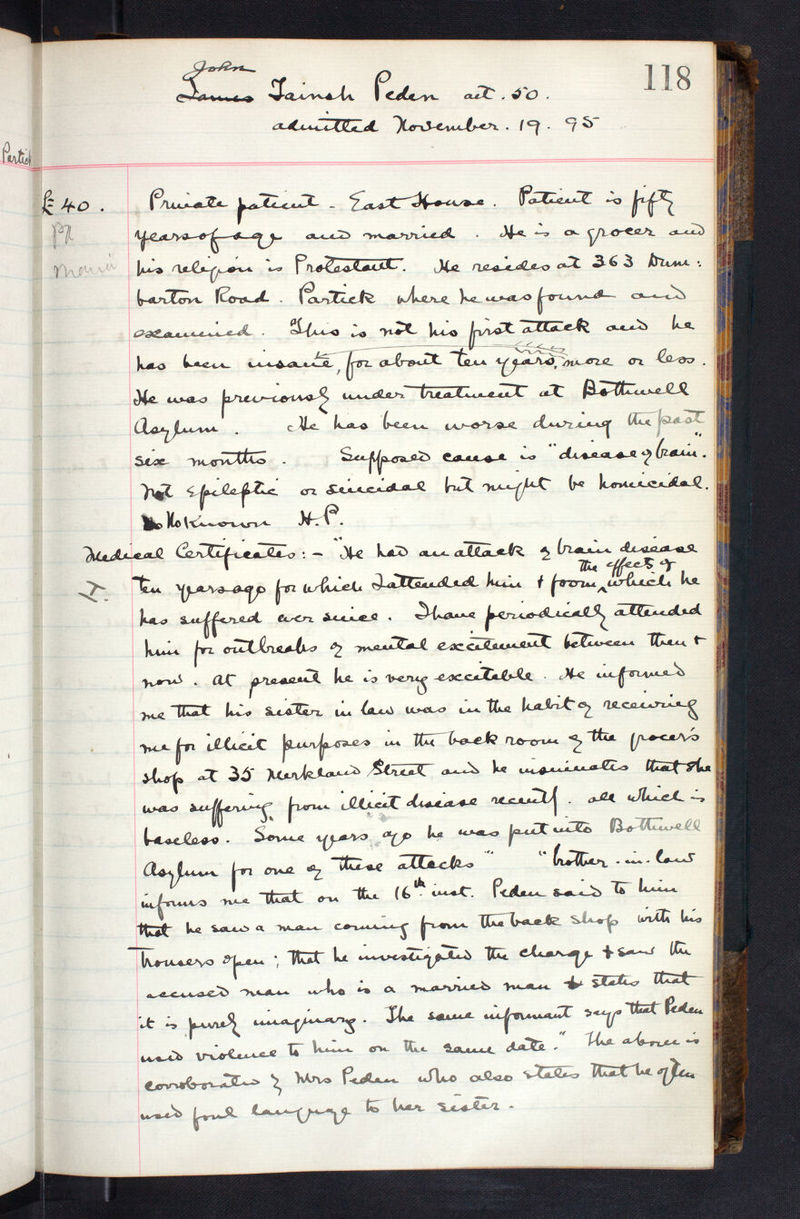 118
John
James Tainsh Peden aet. 50.
admitted November. 19. 95
Partick
£40.
PA
Mania
Private patient - East House. Patient is fifty
years of age and married. He is a grocer and
his religion is Protestant. He resides at 363 Dum:
barton Road. Partick where he was found and
examined. This is not his first attack and he
has been insane, for about ten years, more or less.
He was previously under treatment at Bothwell
Asylum. He has been worse during the past
six months. Supposed cause is "disease of brain".
Not Epileptic or suicidal but might be homicidal.
No known H.P.
Medical Certificates:- "He had an attack of brain disease
I.
ten years ago for which I attended him & from the effects of which he
has suffered ever since. I have periodically attended
him for outbreaks of mental excitement between then &
now. At present he is very excitable. He informed
me that his sister in law was in the habit of receiving
me for illicit purposes in the back room of the grocer's
shop at 35 Merkland Street and he insinuates that she
was suffering from illicit disease recently. all which is
baseless. Some years ago he was put into Bothwell
Asylum for one of these attacks" "brother-in-law
informs me that on the 16th inst. Peden said to him
that he saw a man coming from the back shop with his
trousers open; that he investigated the charge & saw the
accused man who is a married man & states that
it is purely imaginary. The same informant says that Peden
used violence to him on the same date." The above is
corroborated by Mrs Peden who also states that he often
used foul language to her sister.